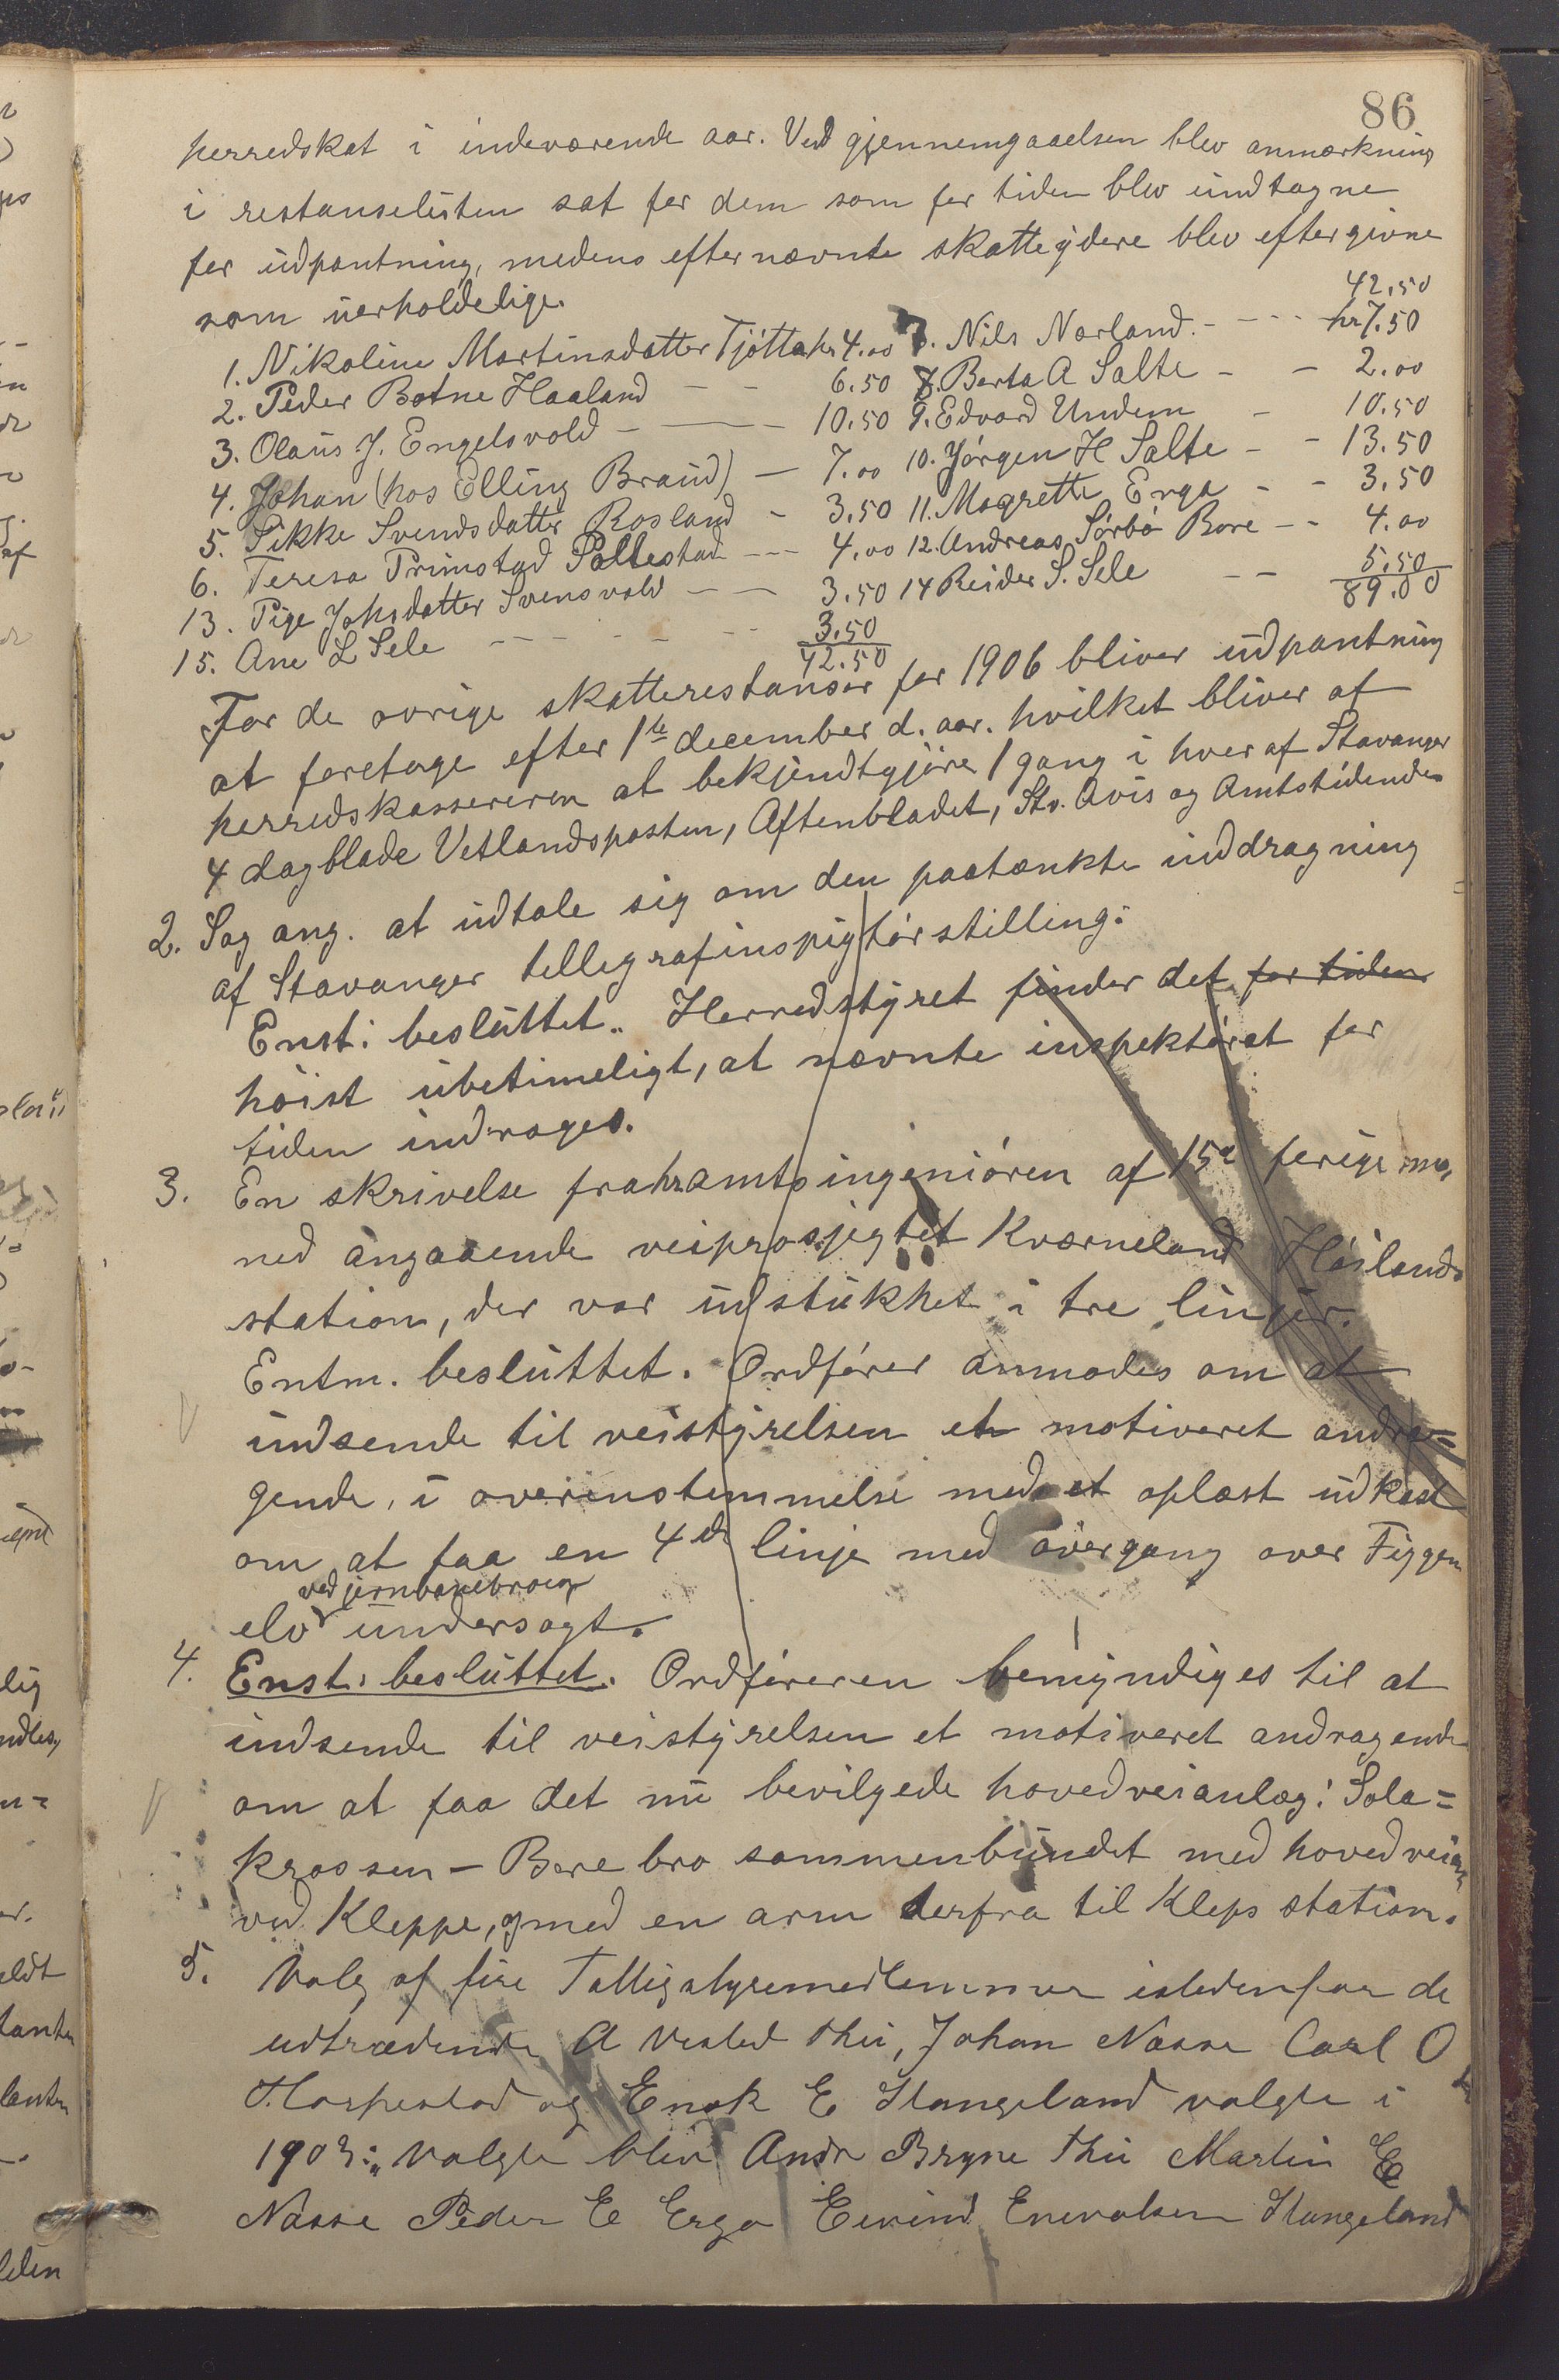 86
herredskat i indeværende aar. Ved gjennemgaaelsen blev anmærkning
i restanselisten sat for dem som for tiden blev undtagne
for udpantning, medens efternævnte skatteydere blev eftergivne
som uerholdelige.
42.50
1. Nikoline Martinsdatter Tjøtta kr 4.00 7. Nils Norland. - - - - kr 7.50
2. Peder Botne Haaland - - 6.50 8. Berta A Salte - - 2.00
3. Olaus J. Engelsvold - - - 10.50 9. Edvard Undem - 10.50
4. Johan (hos Elling Braud) - 7.00 10. Jørgen H Salte - - 13.50
5. Sikke Svendsdatter Rosland - 3.50 11. Magrette Erga - - 3.50
6. Teresa Primstad Pollestad - - - 4.00 12. Andreas Sørbø Bore - - 4.00
13. Pige Johsdatter Svensvold - - 3.50 14 Reider S. Sele - - 5.50
15. Ane L Sele - - - - - - - 3.50 89.00
42.50
For de øvrige skatterestanser for 1906 bliver udpantning
at foretage efter 1ste december d. aar. hvilket bliver af
herredskassereren at bekjendtgjøre 1 gang i hver af Stavanger
4 dagblade Vetlandsposten, Aftenbladet, Stv. Avis og Amtstidende
2. Sag ang. at udtale sig om den paatænkte inddragning
af Stavanger tellegrafinspigtørstilling:
Enst: besluttet.. Herredstyret finder det for tiden
høist ubetimeligt, at nævnte inspektørat for
tiden indrages.
3. En skrivelse fra hr. amtsingeniøren af 15de forige maa
ned angaaende veiprosjegtet Kværneland Høilands
station, der var udstukket i tre linjer.
Entm. besluttet. Ordfører anmodes om at
indsende til veistyrelsen et motiveret andra=
gende, i overinstemmelse med et oplæst udkast
om at faa en 4de linje med overgang over Figgen
ved jernbanebroen
elv undersøgt.
4. Enst. besluttet. Ordføreren bemyndiges til at
indsende til veistyrelsen et motiveret andragende
om at faa det nu bevilgede hovedveianlæg: Sola=
krossen - Bore bro sammenbundet med hovedveien
ved Kleppe, og med en arm derfra til Kleps station.
5. Valg af fire Tilligstyremedlemmer istedenfor de
udtrædende A Vested Thu, Johan Nasse Carl O
Horpestad og Enok E Stangeland valgte i
1903: Valgte blev Andr Bryne Thu Martin E
Nasse Peder E Erga Eivind Enevalsen Stangeland